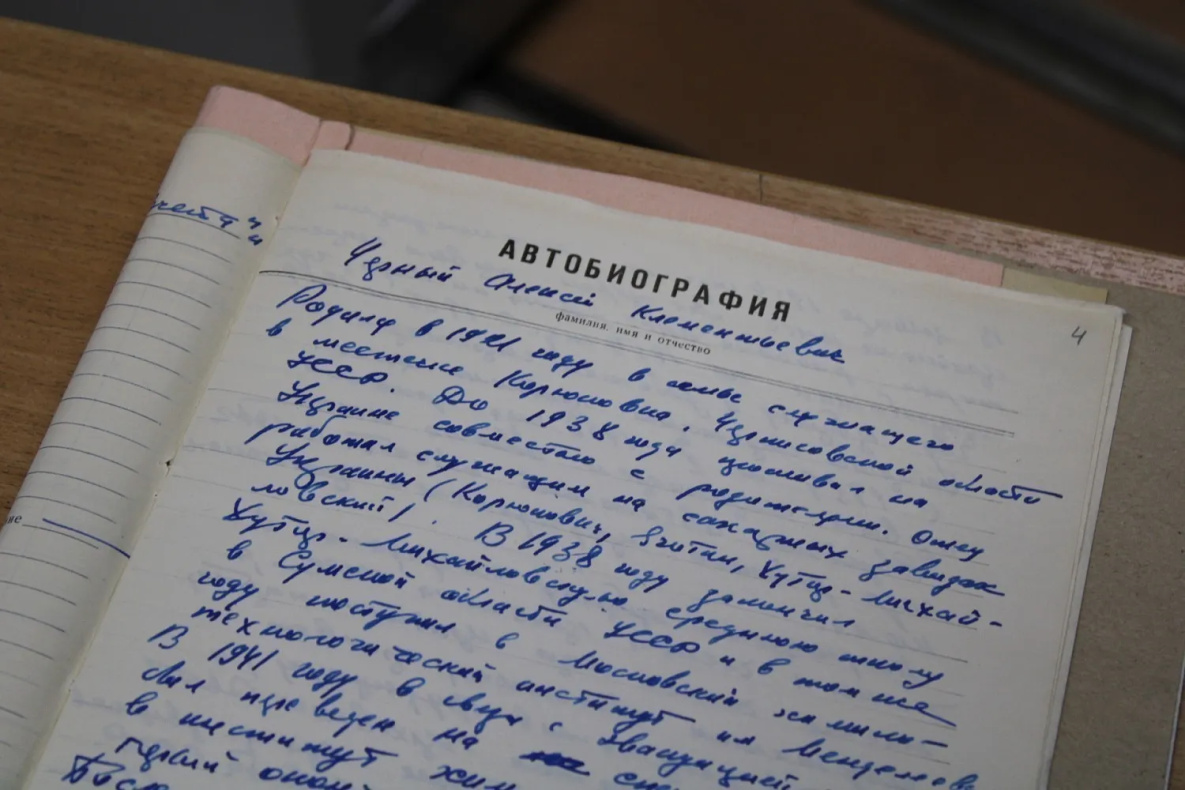 АВТОБИОГРАФИЯ
Черный Алексей Клементьевич
фамилия, имя и отчество
4
Родился в 1921 году в семье служащего
в местечке Корюковка, Черниговской области
УССР. До 1938 года проживал на
Украине совместно с родителями. Отец
работал служащим на сахарных заводах
Украины (Корюкович, Яготин, Хутор-Михай-
ловский). В 1938 году закончил
Хутор-Михайловскую среднюю школу
в Сумской области УССР и в том же
году поступил в Московский химико-
технологический институт им Менделеева
В 1941 году в связи с эвакуацией
был переведен на
в институт хим
После